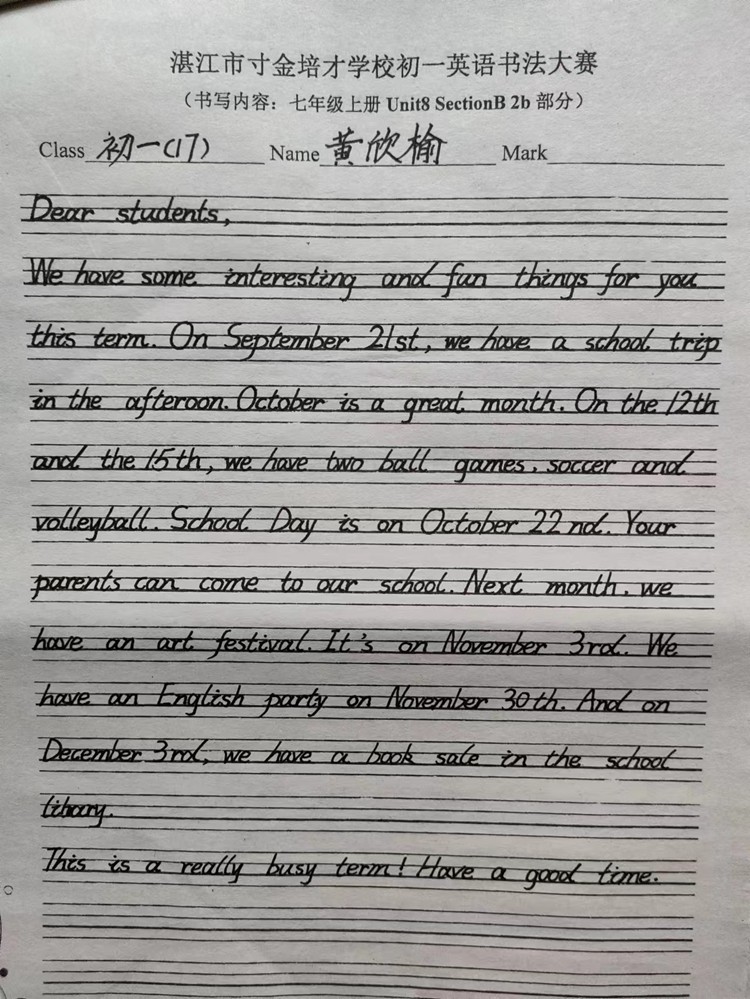 湛江市寸金培才学校初一英语书法大赛
（书写内容：七年级上册 Unit8 SectionB 2b 部分）
Class 初一(17) Name 黄欣榆 Mark
Dear students,
We have some interesting and fun things for you
this term. On September 21st, we have a school trip
in the afteroon. October is a great month. On the 12th
and the 15th, we have two ball games. soccer and
volleyball. School Day is on October 22nd. Your
parents can come to our school. Next month. we
have an art festival. It's on November 3rd. We
have an English party on November 30th. And on
December 3rd, we have a book sale in the school
library.
This is a really busy term! Have a good time.